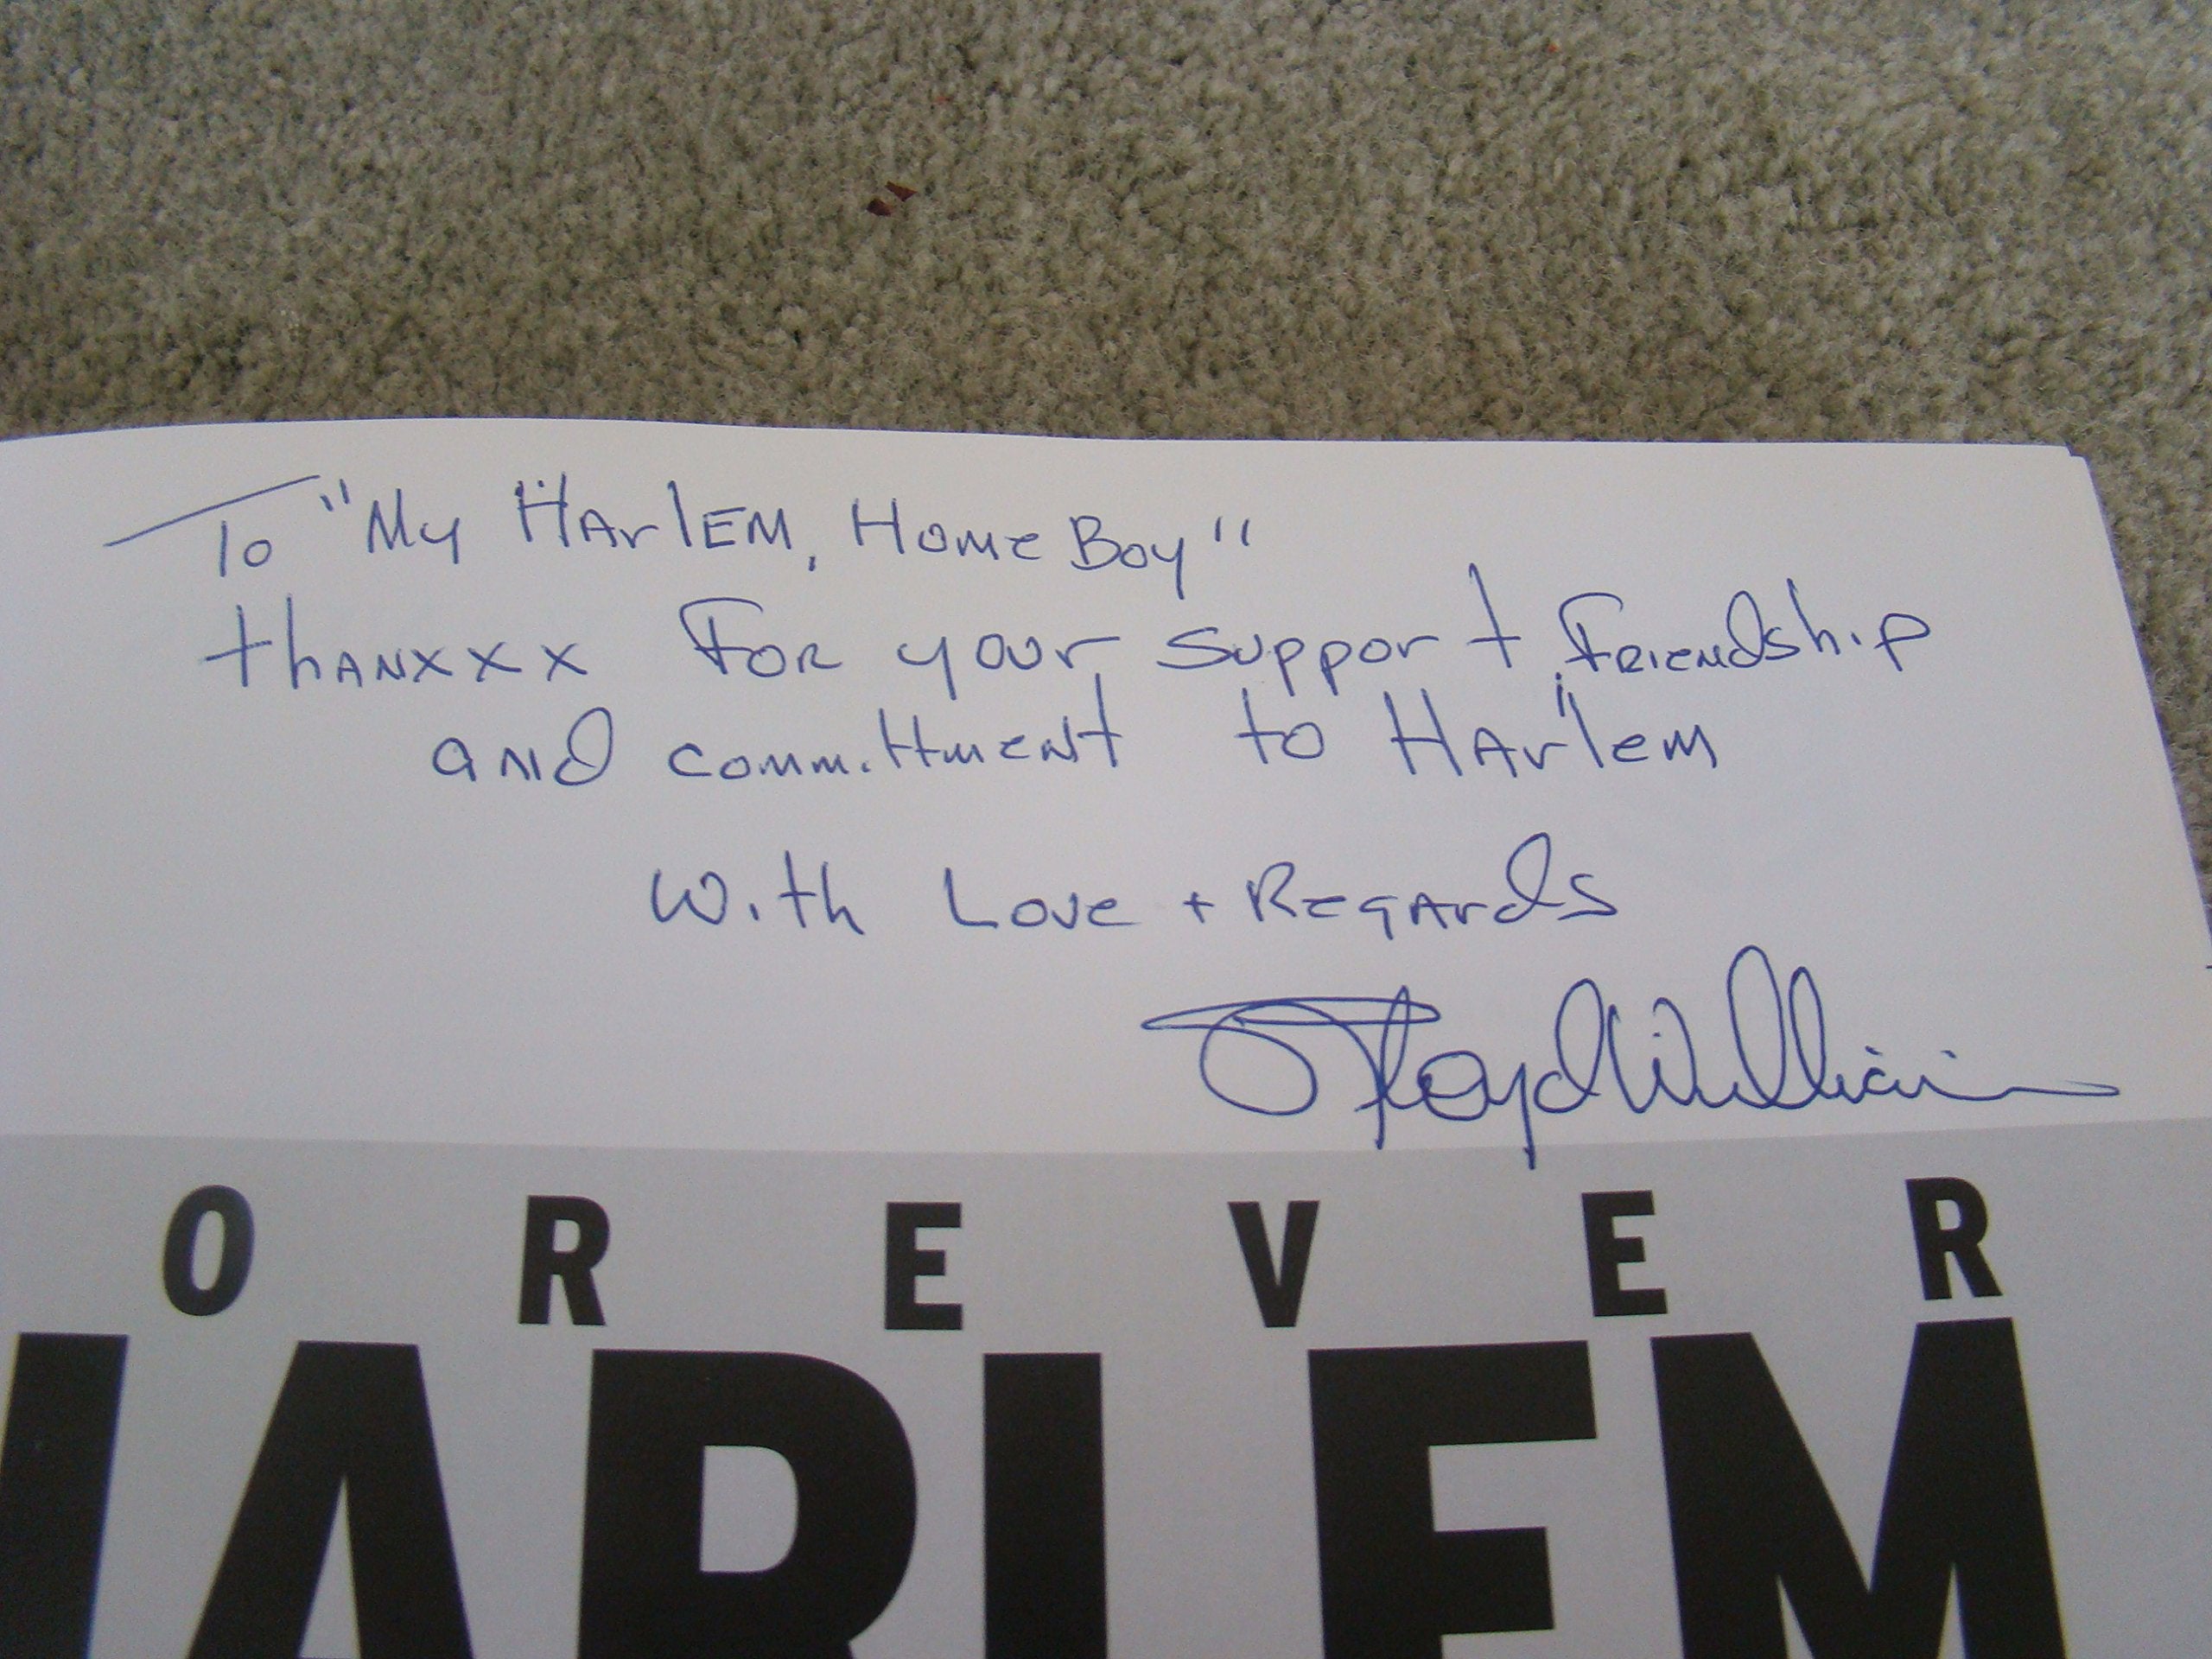 To "My HArlEM, Home Boy"
thANxxx For your support, Friendship
and committment to HArlem
With Love + Regards
Floyd Williams
OREVER
HARLEM